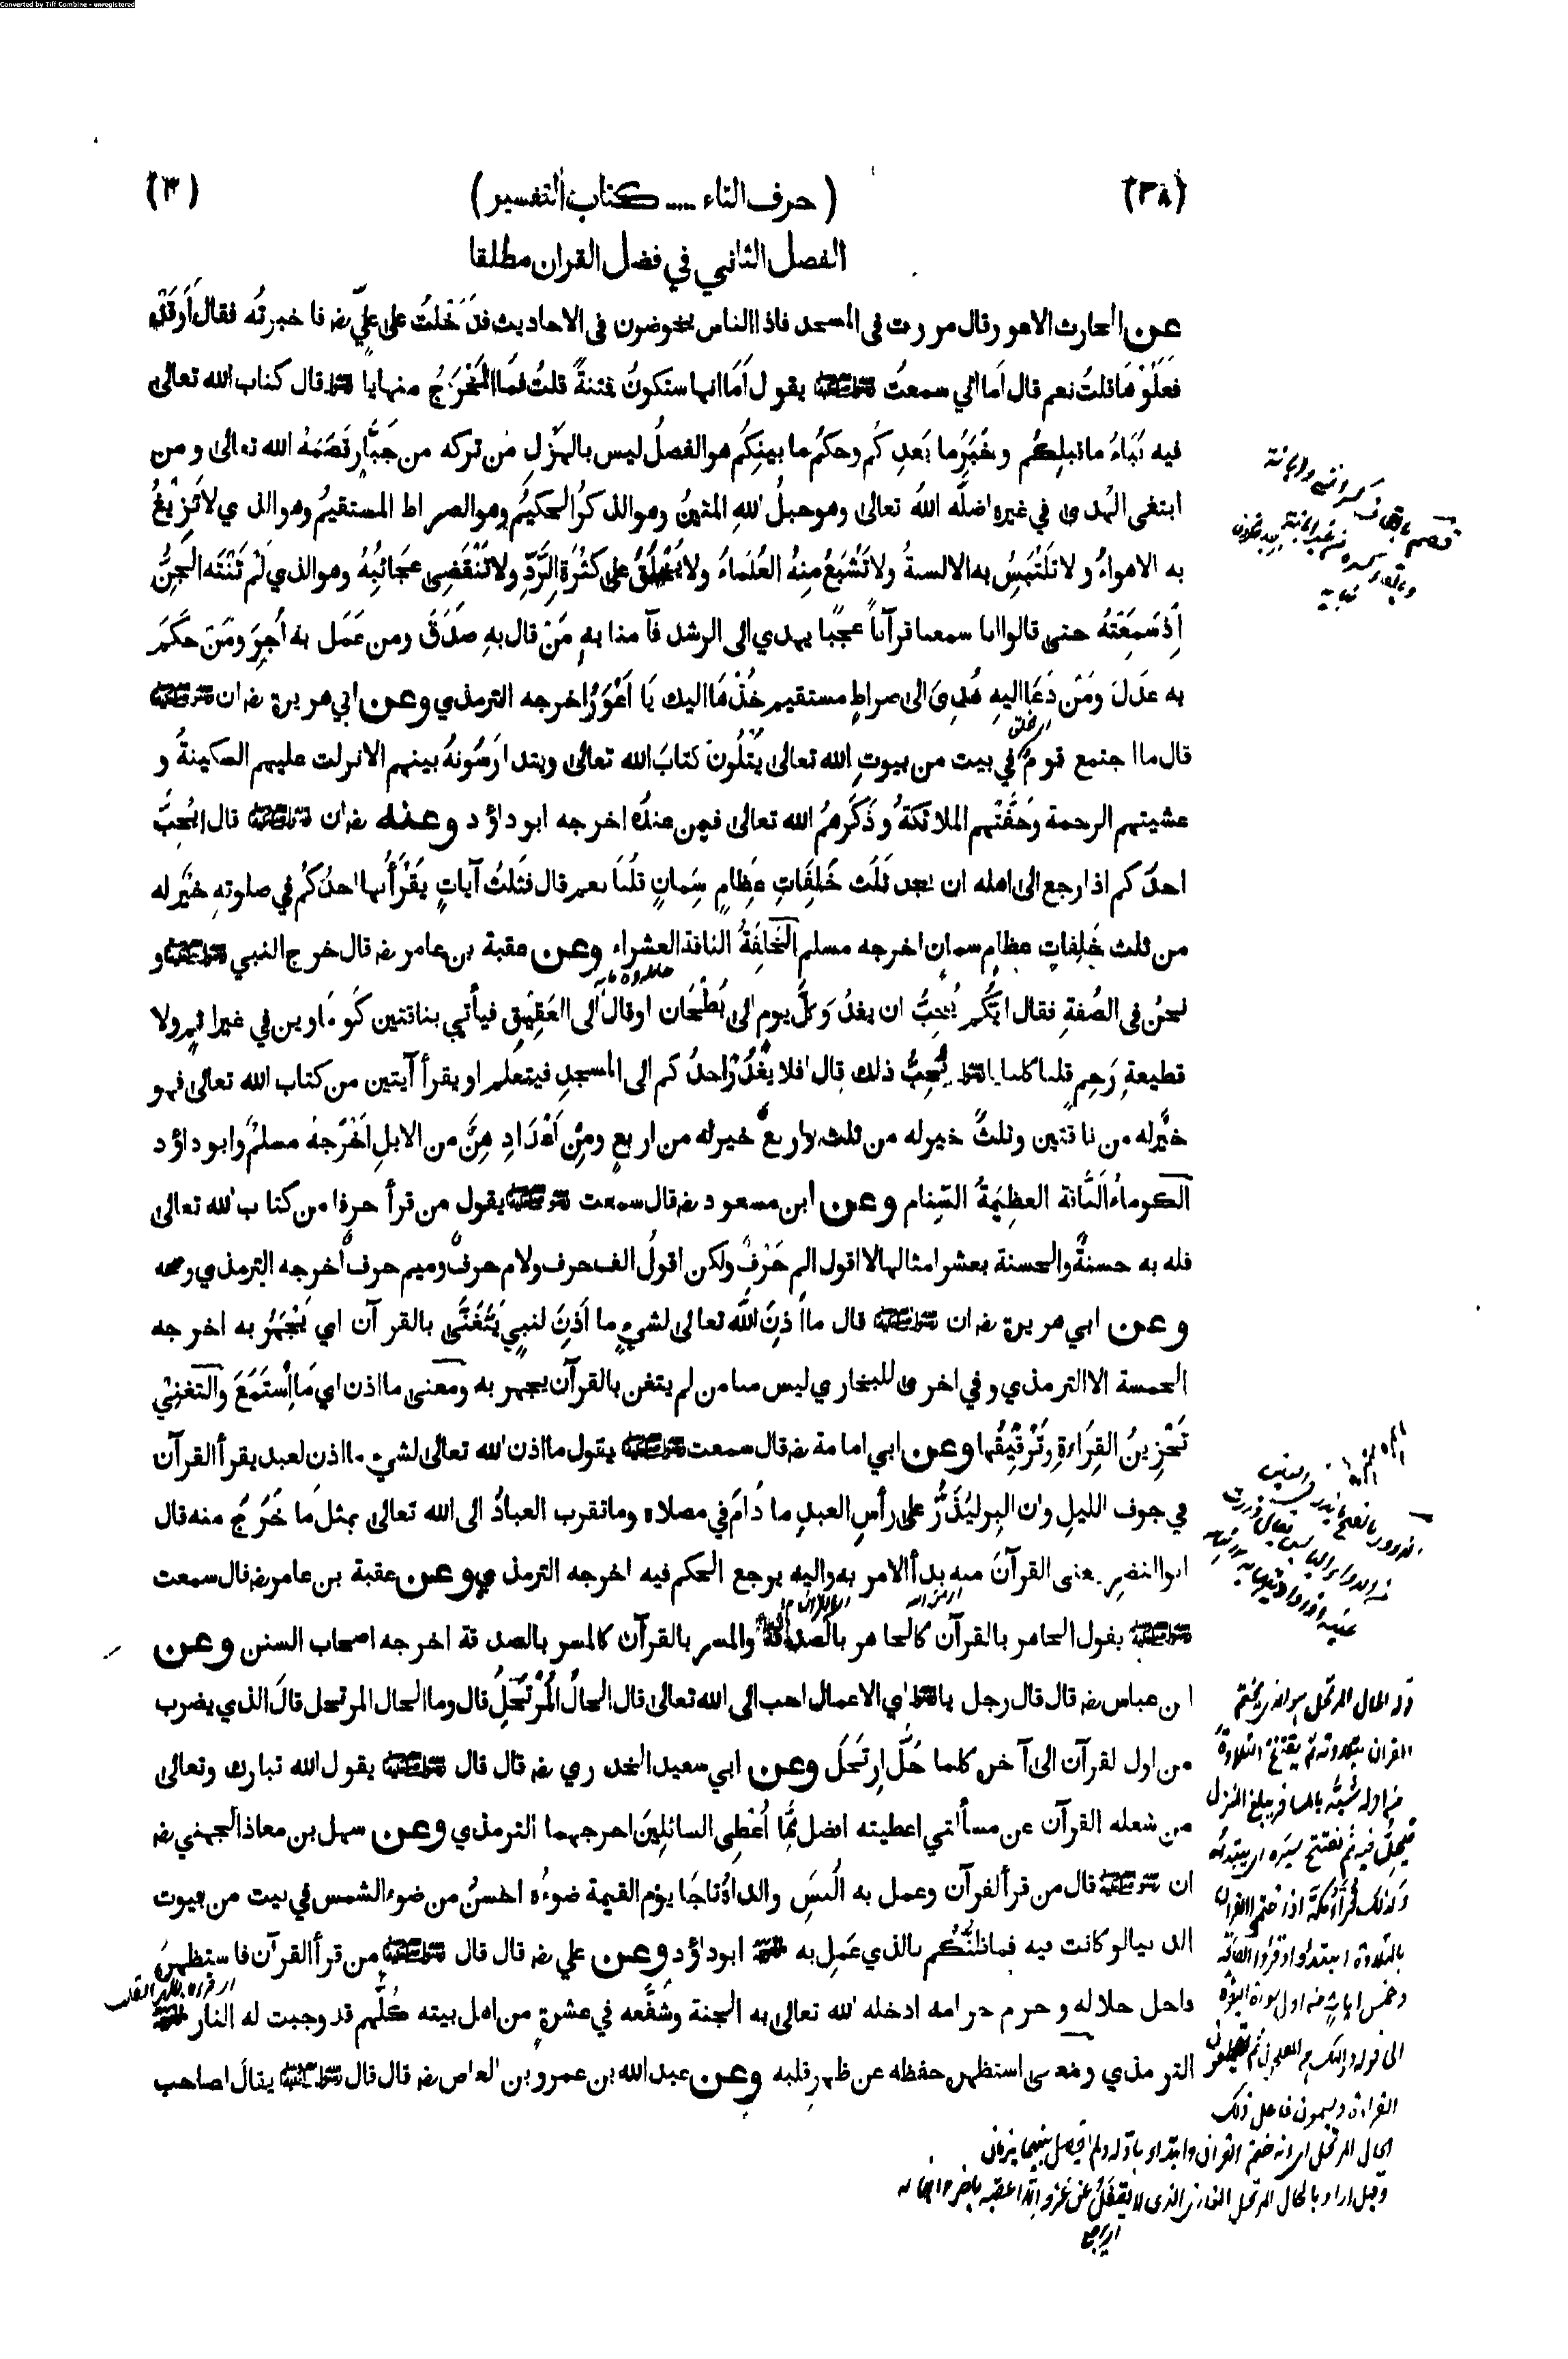 Converted by Tiff Combine - unregistered
(٣٨) (حرف التاء ..... كتاب التفسير) (٣)
الفصل الثاني في فضل القران مطلقا
عن الحارث الاعور قال مررت في المسجد فاذا الناس يخوضون في الاحاديث فدَخَلتُ على عليٍّ رضه فاخبرته فقال أَوَقَدْ
فَعَلُوْهَا قلتُ نعم قال أَمَا اني سمعتُ يقول أَمَا انها ستكونُ فتنةً قلتُ فما المَخْرَجُ منها يا قال كتاب الله تعالى
فيه نَبَاءُ ما قبلِكُم وخَبَرُ ما بَعدِكُم وحكمُ ما بينِكُم هو الفصلُ ليس بالهَزْلِ مَن تركه من جَبَّارٍ قَصَمَهُ الله تعالى ومن
ابتغى الهُدى في غيره اضلّه اللهُ تعالى وهو حبلُ اللهِ المتينُ وهو الذكرُ الحكيمُ وهو الصراط المستقيمُ وهو الذي لا تَزِيْغُ
به الاهواءُ ولا تَلْتَبِسُ به الالسنةُ ولا تَشْبَعُ مِنهُ العُلَماءُ ولا يَخْلَقُ على كَثْرَةِ الرَّدِّ ولا تَنْقَضِى عجائبُهُ وهو الذي لَمْ تَنْتَه الجِنُّ
إِذْ سَمِعَتْهُ حتى قالوا انا سمعنا قرآناً عجبًا يهدي الى الرشد فآمنا به مَنْ قال بِه صَدَقَ ومن عَمَل به أُجِرَ ومَن حَكَمَ
به عَدَلَ ومَن دَعَا اليهِ هُدِىَ الى صراطٍ مستقيمٍ خُذْهَا اليك يَا اَعْوَرُ اخرجه الترمذي وعن ابي هريرة رضه ان
قال ما اجتمع قومٌ في بيت من بيوتِ الله تعالى يَتْلُونَ كتابَ الله تعالى ويتدارَسُونَهُ بينهم الا نزلت عليهم السكينةُ و
غشيتهم الرحمة وحَفَّتْهم الملائكةُ وذَكَرهُم الله تعالى فيمن عنده اخرجه ابو داؤد وعنه رضه ان قال ايُحِبُّ
احدُكم اذا رجع الى اهله ان يجد ثَلٰث خَلِفَاتٍ عِظامٍ سِمانٍ قلنا نعم قال فثلٰثُ آياتٍ يَقْرَأُ بها احدُكُم في صلوتهِ خَيْرٌ له
من ثلٰث خَلِفاتٍ عظامٍ سمانٍ اخرجه مسلم الخَلِفَةُ الناقة العشراء وعن عقبة بن عامر رضه قال خرج النبي و
نحنُ في الصُفةِ فقال ايّكم يُحِبُّ ان يغدُوَ كلَّ يوم الى بُطْحَان او قال الى العَقِيْقِ فيأتي بناقتين كَوْماوين في غير اثمٍ ولا
قطيعةِ رَحِمٍ قلنا كلنا يا نُحِبُّ ذلك قال افلا يغْدُوْ احدُكم الى المسجدِ فيتعلم او يقرأ آيتين من كتاب الله تعالى فهو
خَيْرٌ له من ناقتين وثلٰثٌ خير له من ثلٰث واربعٌ خير له من اربعٍ ومِن اَعْدَادِ هِنَّ من الابلِ اَخْرَجهُ مسلمٌ وابو داؤد
الكوماءُ الناقة العظِيْمةُ السِّنام وعن ابن مسعود رضه قال سمعت يقول من قرأ حرفا من كتاب الله تعالى
فله به حسنةٌ والحسنة بعشر امثالها لا اقول الم حَرْفٌ ولكن اقولُ الف حرف ولام حرفٌ وميم حرفٌ اخرجه الترمذي وصححه
وعن ابي هريرة رضه ان قال ما أَذِنَ اللّٰه تعالى لشيءٍ ما اَذِنَ لنبيٍ يَتَغَنّٰى بالقرآن اي يَجْهَرُ به اخرجه
الخمسة الا الترمذي وفي اخرى للبخاري ليس منا من لم يتغن بالقرآن يجهر به ومعنى ما اذن اي مَا اِسْتَمَعَ والتغني
تَحْزِينُ القِرَاءةِ وتَرْقِيْقُها وعن ابي امامة رضه قال سمعت يقول ما اذن الله تعالى لشيءٍ ما اذن لعبد يقرأ القرآن
في جوف الليلِ وان البِر ليُذَرُّ على رأسِ العبدِ ما دَامَ في مصلاه وما تقرب العبادُ الى الله تعالى بمثل مَا خَرَجَ منه قال
ابو النضرِ يعنى القرآنَ منه بدأ الامر به واليه يرجع الحكم فيه اخرجه الترمذي وعن عقبة بن عامر رضه قال سمعت
يقول الجاهر بالقرآن كالجاهر بالصدقة والمسر بالقرآن كالمسر بالصدقة اخرجه اصحاب السنن وعن
ابن عباس رضه قال قال رجل يا اي الاعمال احب الى الله تعالى قال الحالُ المُرْتَحِلُ قال وما الحال المرتحل قال الذي يضرب
من اول القرآن الى آخره كلما حَلَّ ارتَحَلَ وعن ابي سعيد الخدري رضه قال قال يقول الله تبارك وتعالى
من شغله القرآن عن مسألتي اعطيته افضل ممّا اُعْطِى السائلِينَ اخرجهما الترمذي وعن سهل بن معاذ الجهني رضه
ان قال من قرأ القرآن وعمل به اُلْبِسَ والداهُ تاجًا يوْم القيمة ضوءُه احْسنُ من ضوء الشمس في بيت من بيوت
الدنيا لو كانت فيه فما ظنُّكم بالذي عَمِل به ابو داؤد وعن علي رضه قال قال من قرأ القرآن فاستظهرَهُ
فاحل حلاله وحرم حرامه ادخله الله تعالى به الجنة وشفَّعه في عشرةٍ من اهل بيته كُلُّهم قد وجبت له النار
الترمذي ومعنى استظهره حفظه عن ظهرِ قلبه وعن عبد الله بن عمرو بن العاص رضه قال قال يقالَ لصاحب
قوله الحال المرتحل هو الذي يختم
القران بتلاوته ثم يفتتح التلاوة
من اوله شبّه بالمسافر يبلغ المنزل
فيحلّ فيه ثم يفتتح سيره اى يبتدئه
وكذلك قُرّاء مكّة اذا ختموا القران
بالتلاوة ابتدأوا وقرأوا الفاتحة
وخمس ايات من اول سورة البقرة
الى قوله اولئك هم المفلحون ثم يقطعون
القراءة ويسمون فاعل ذلك
الحال المرتحل اى انه ختم القران وابتداء باوّله ولم يفصل بينهما بزمان
وقيل اراد بالحال المرتحل الغازى الذى لا يَقفلُ عن غزو الّا عقبه باخر